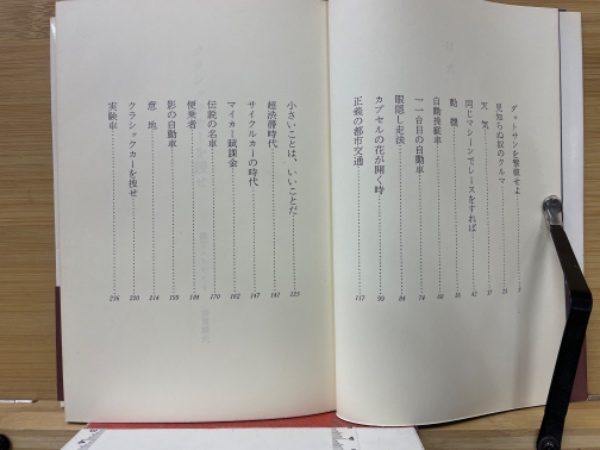 ダットサンを撃墜せよ
見知らぬ奴のクルマ
天気
同じマシーンでレースをすれば 37
動機 42
自動操縦車
一一台目の自動車 74
眼隠し走法 84
カプセルの花が開く時 99
正義の都市交通 117
小さいことは、いいことだ
経済滞時代
サイクルカーの時代 147
マイカー賦課金 162
伝説の名車 170
便乗者
影の自動車
意地 214
クラシックカーを捜せ
実験車